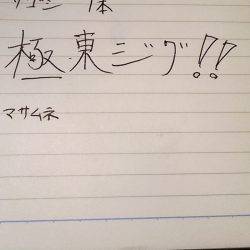 1本
極東ジグ!!
マサムネ